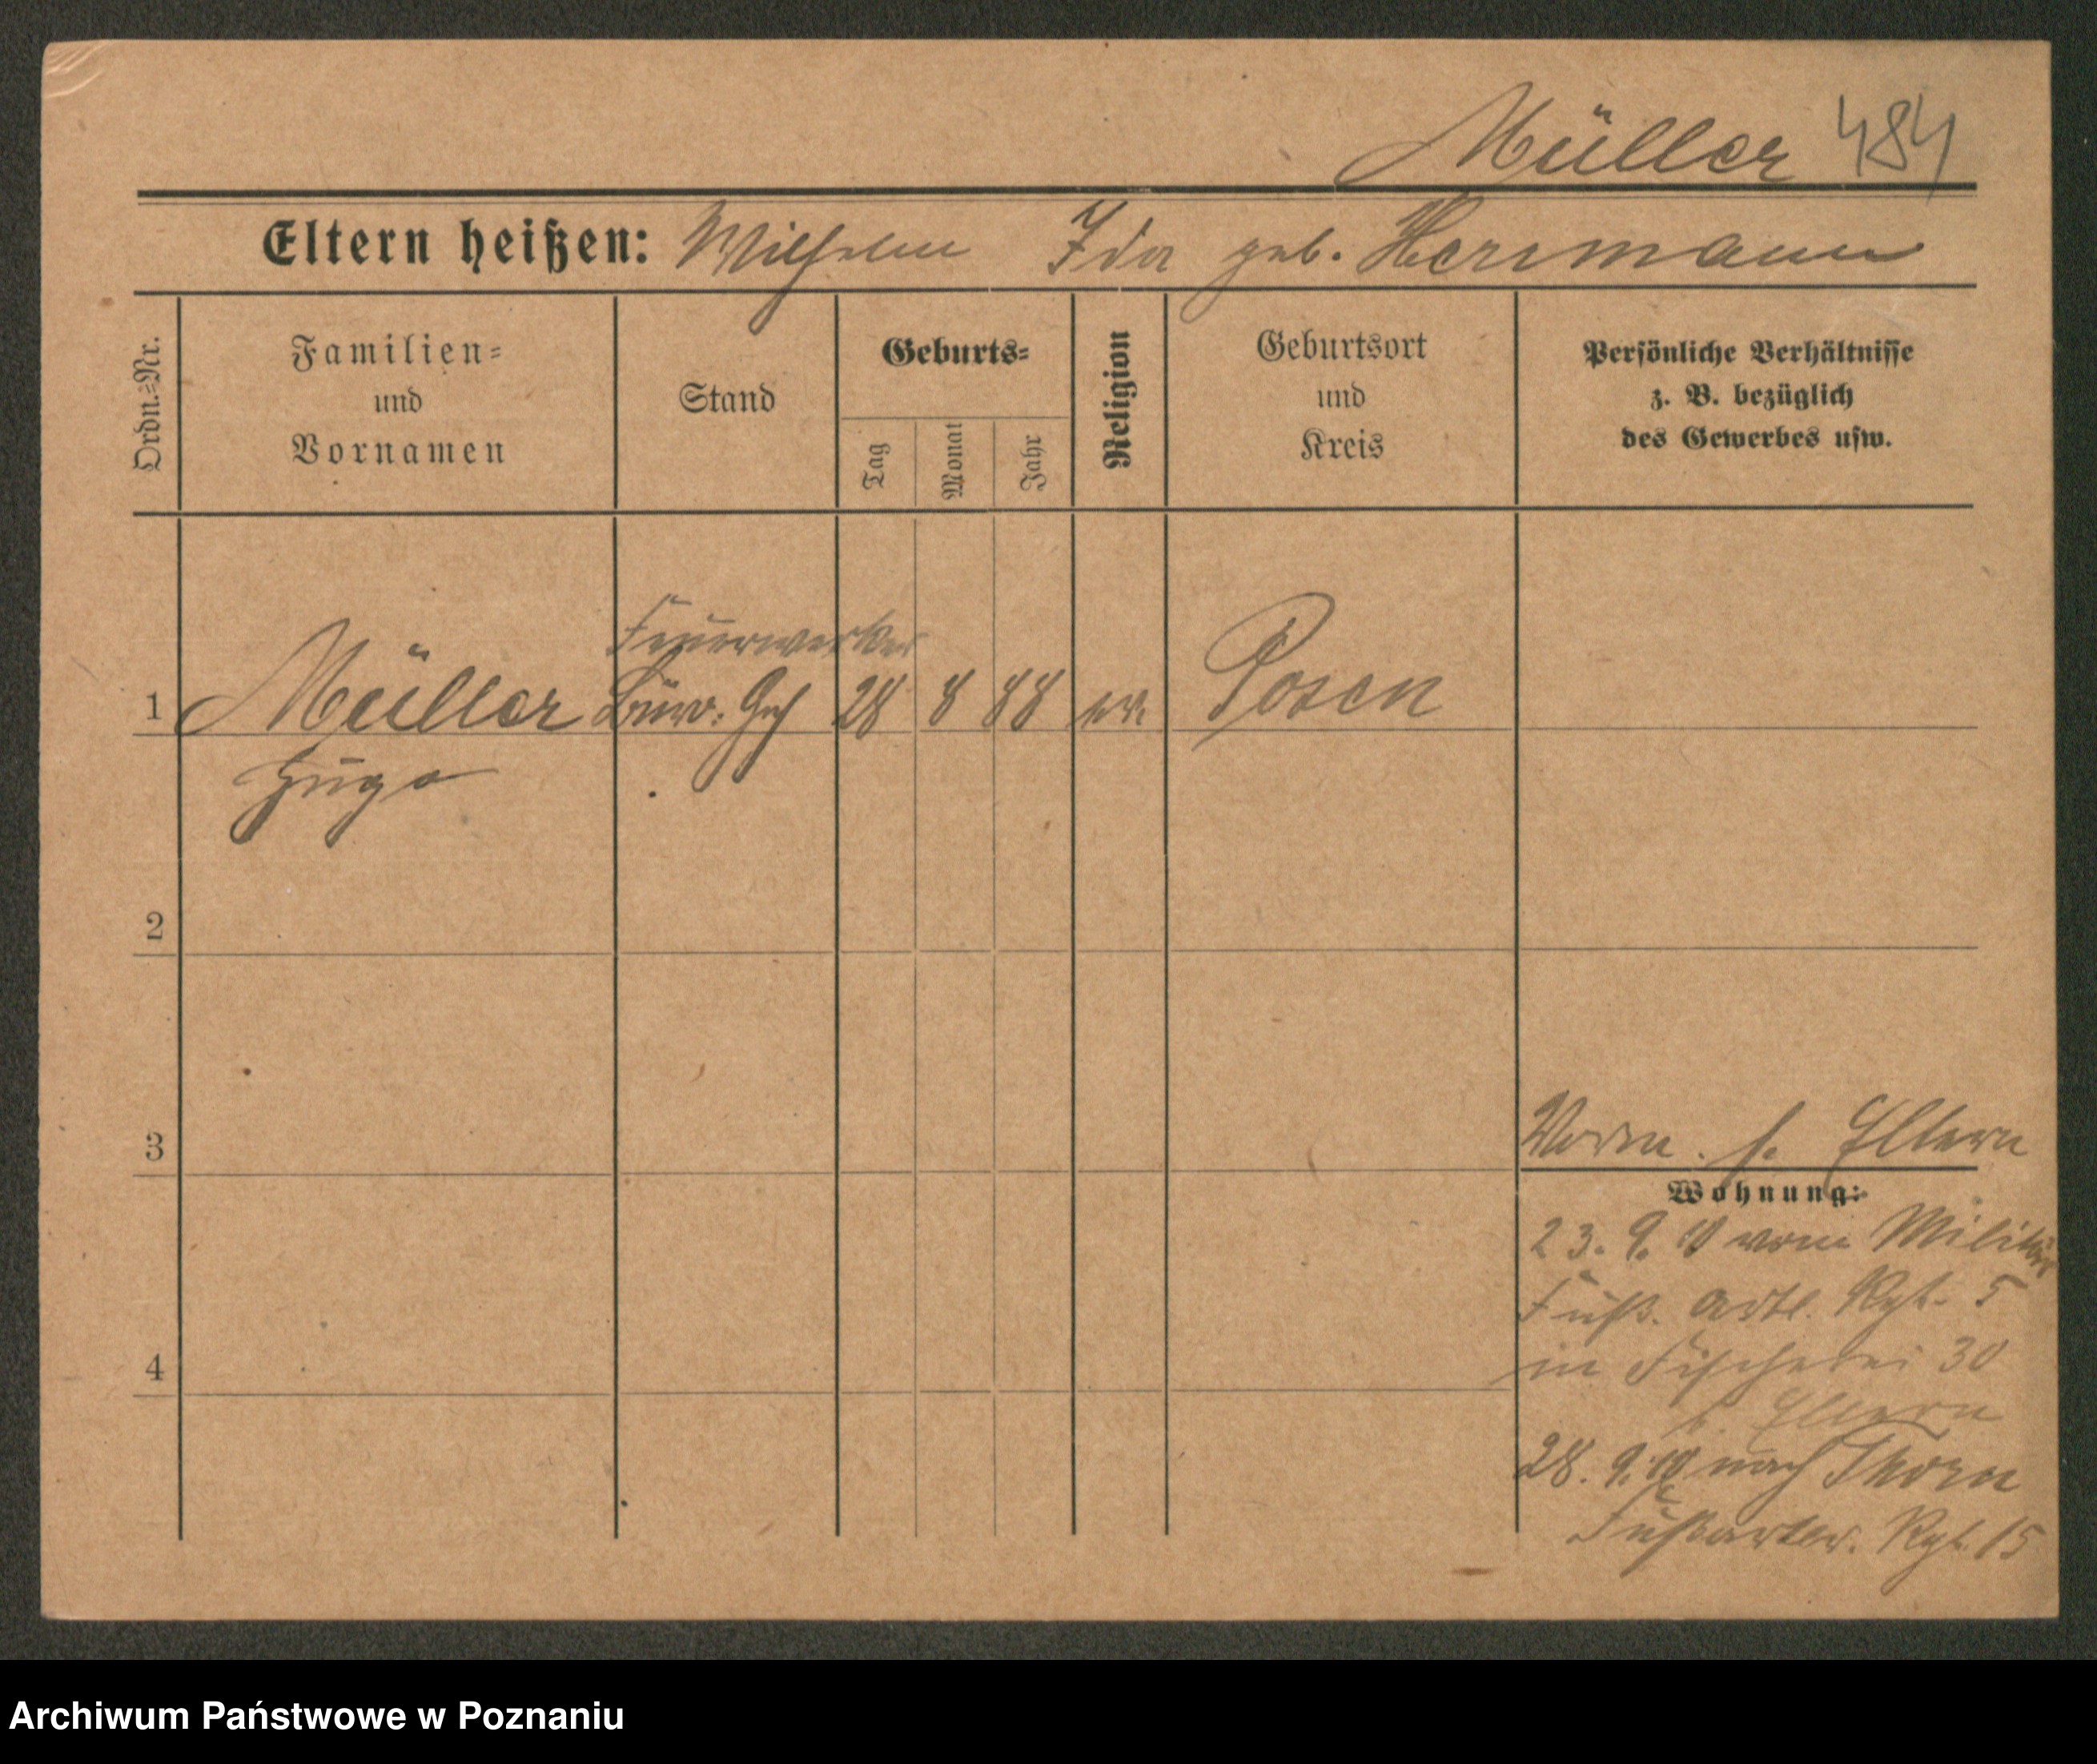 Müller 484
Eltern heißen: Wilhelm Ida geb. Herrmann
Ordn.-Nr.
Familien-
und
Vornamen
Stand
Geburts-
Tag
Monat
Jahr
Religion
Geburtsort
und
Kreis
Persönliche Verhältnisse
z. B. bezüglich
des Gewerbes usw.
Feuerwerker
1 Müller Büro. Geh 28 8 88 ev. Posen
Hugo
2
3
Vorm. s. Eltern
Wohnung:
23. 9. 10 vom Militär
Fuß. Artl. Rgt. 5
in Fischerei 30
4
b Eltern
28. 9. 10 nach Thorn
Fußartler. Rgt. 15
Archiwum Państwowe w Poznaniu